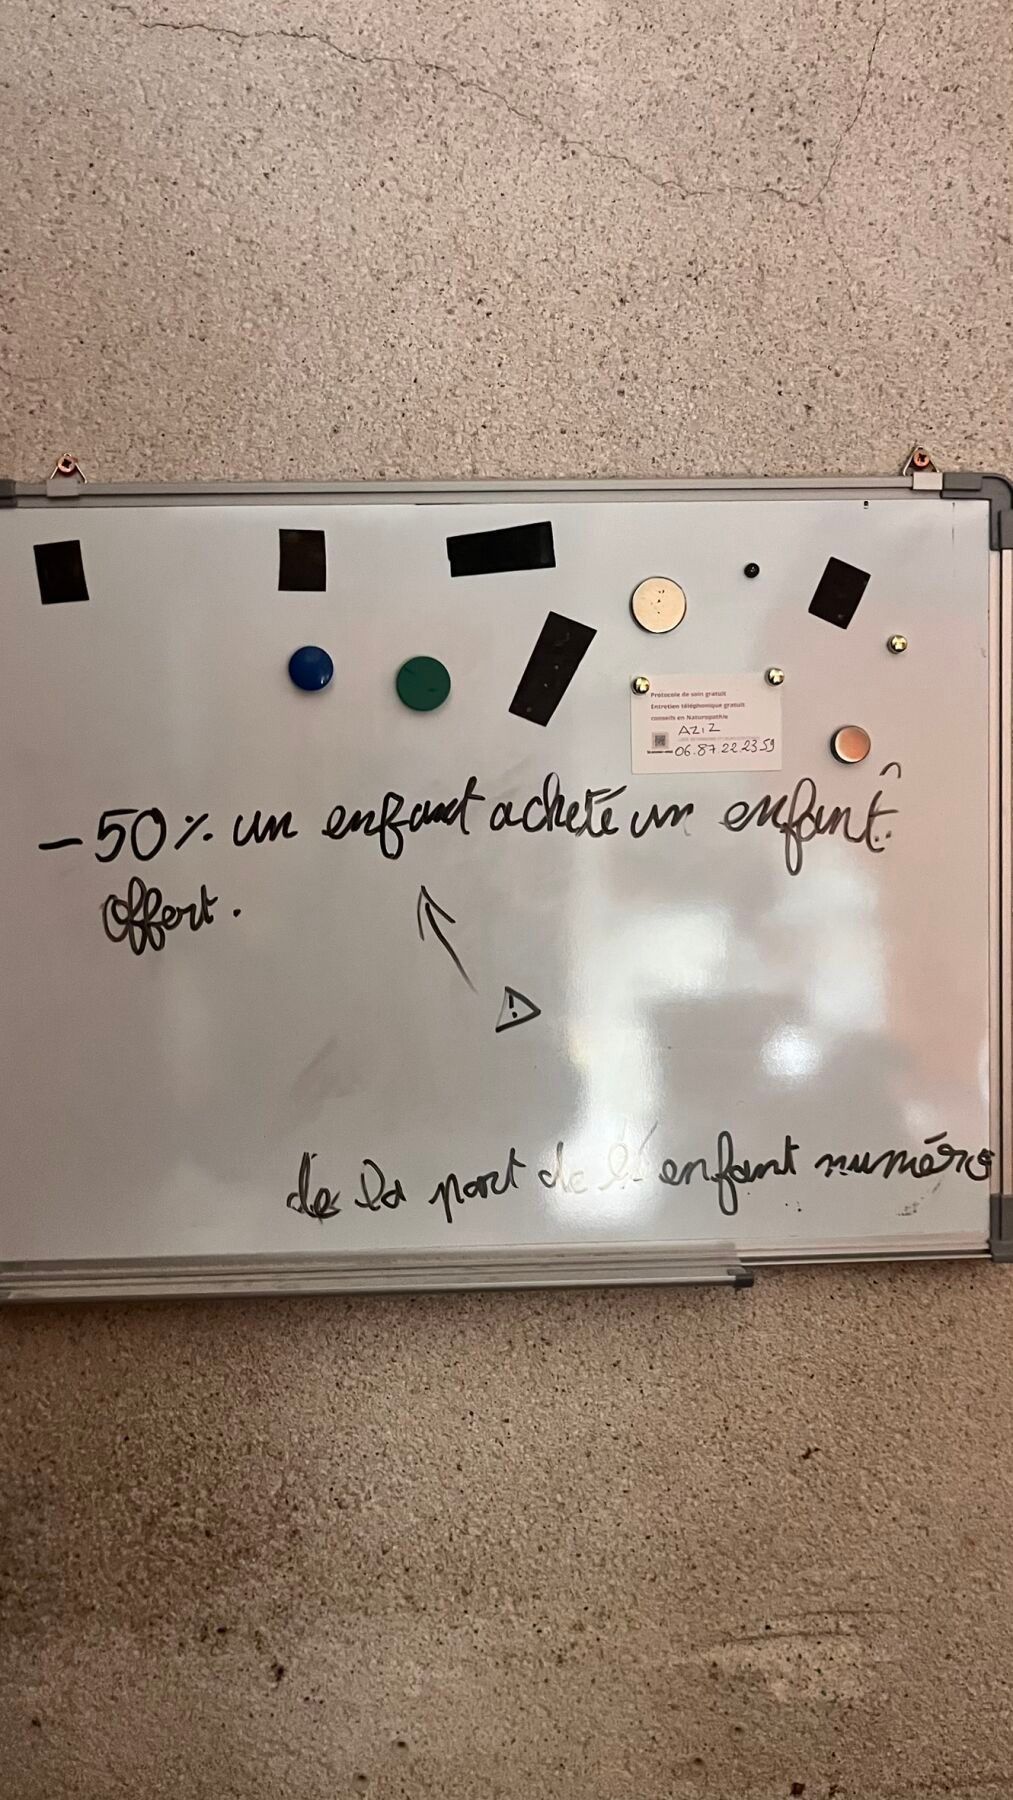 Protocole de soin gratuit
Entretien téléphonique gratuit
conseils en Naturopathie
AZIZ
06.87.22.23.59
-50% un enfant acheté un enfant
offert.
!
de la part de l' enfant numéro